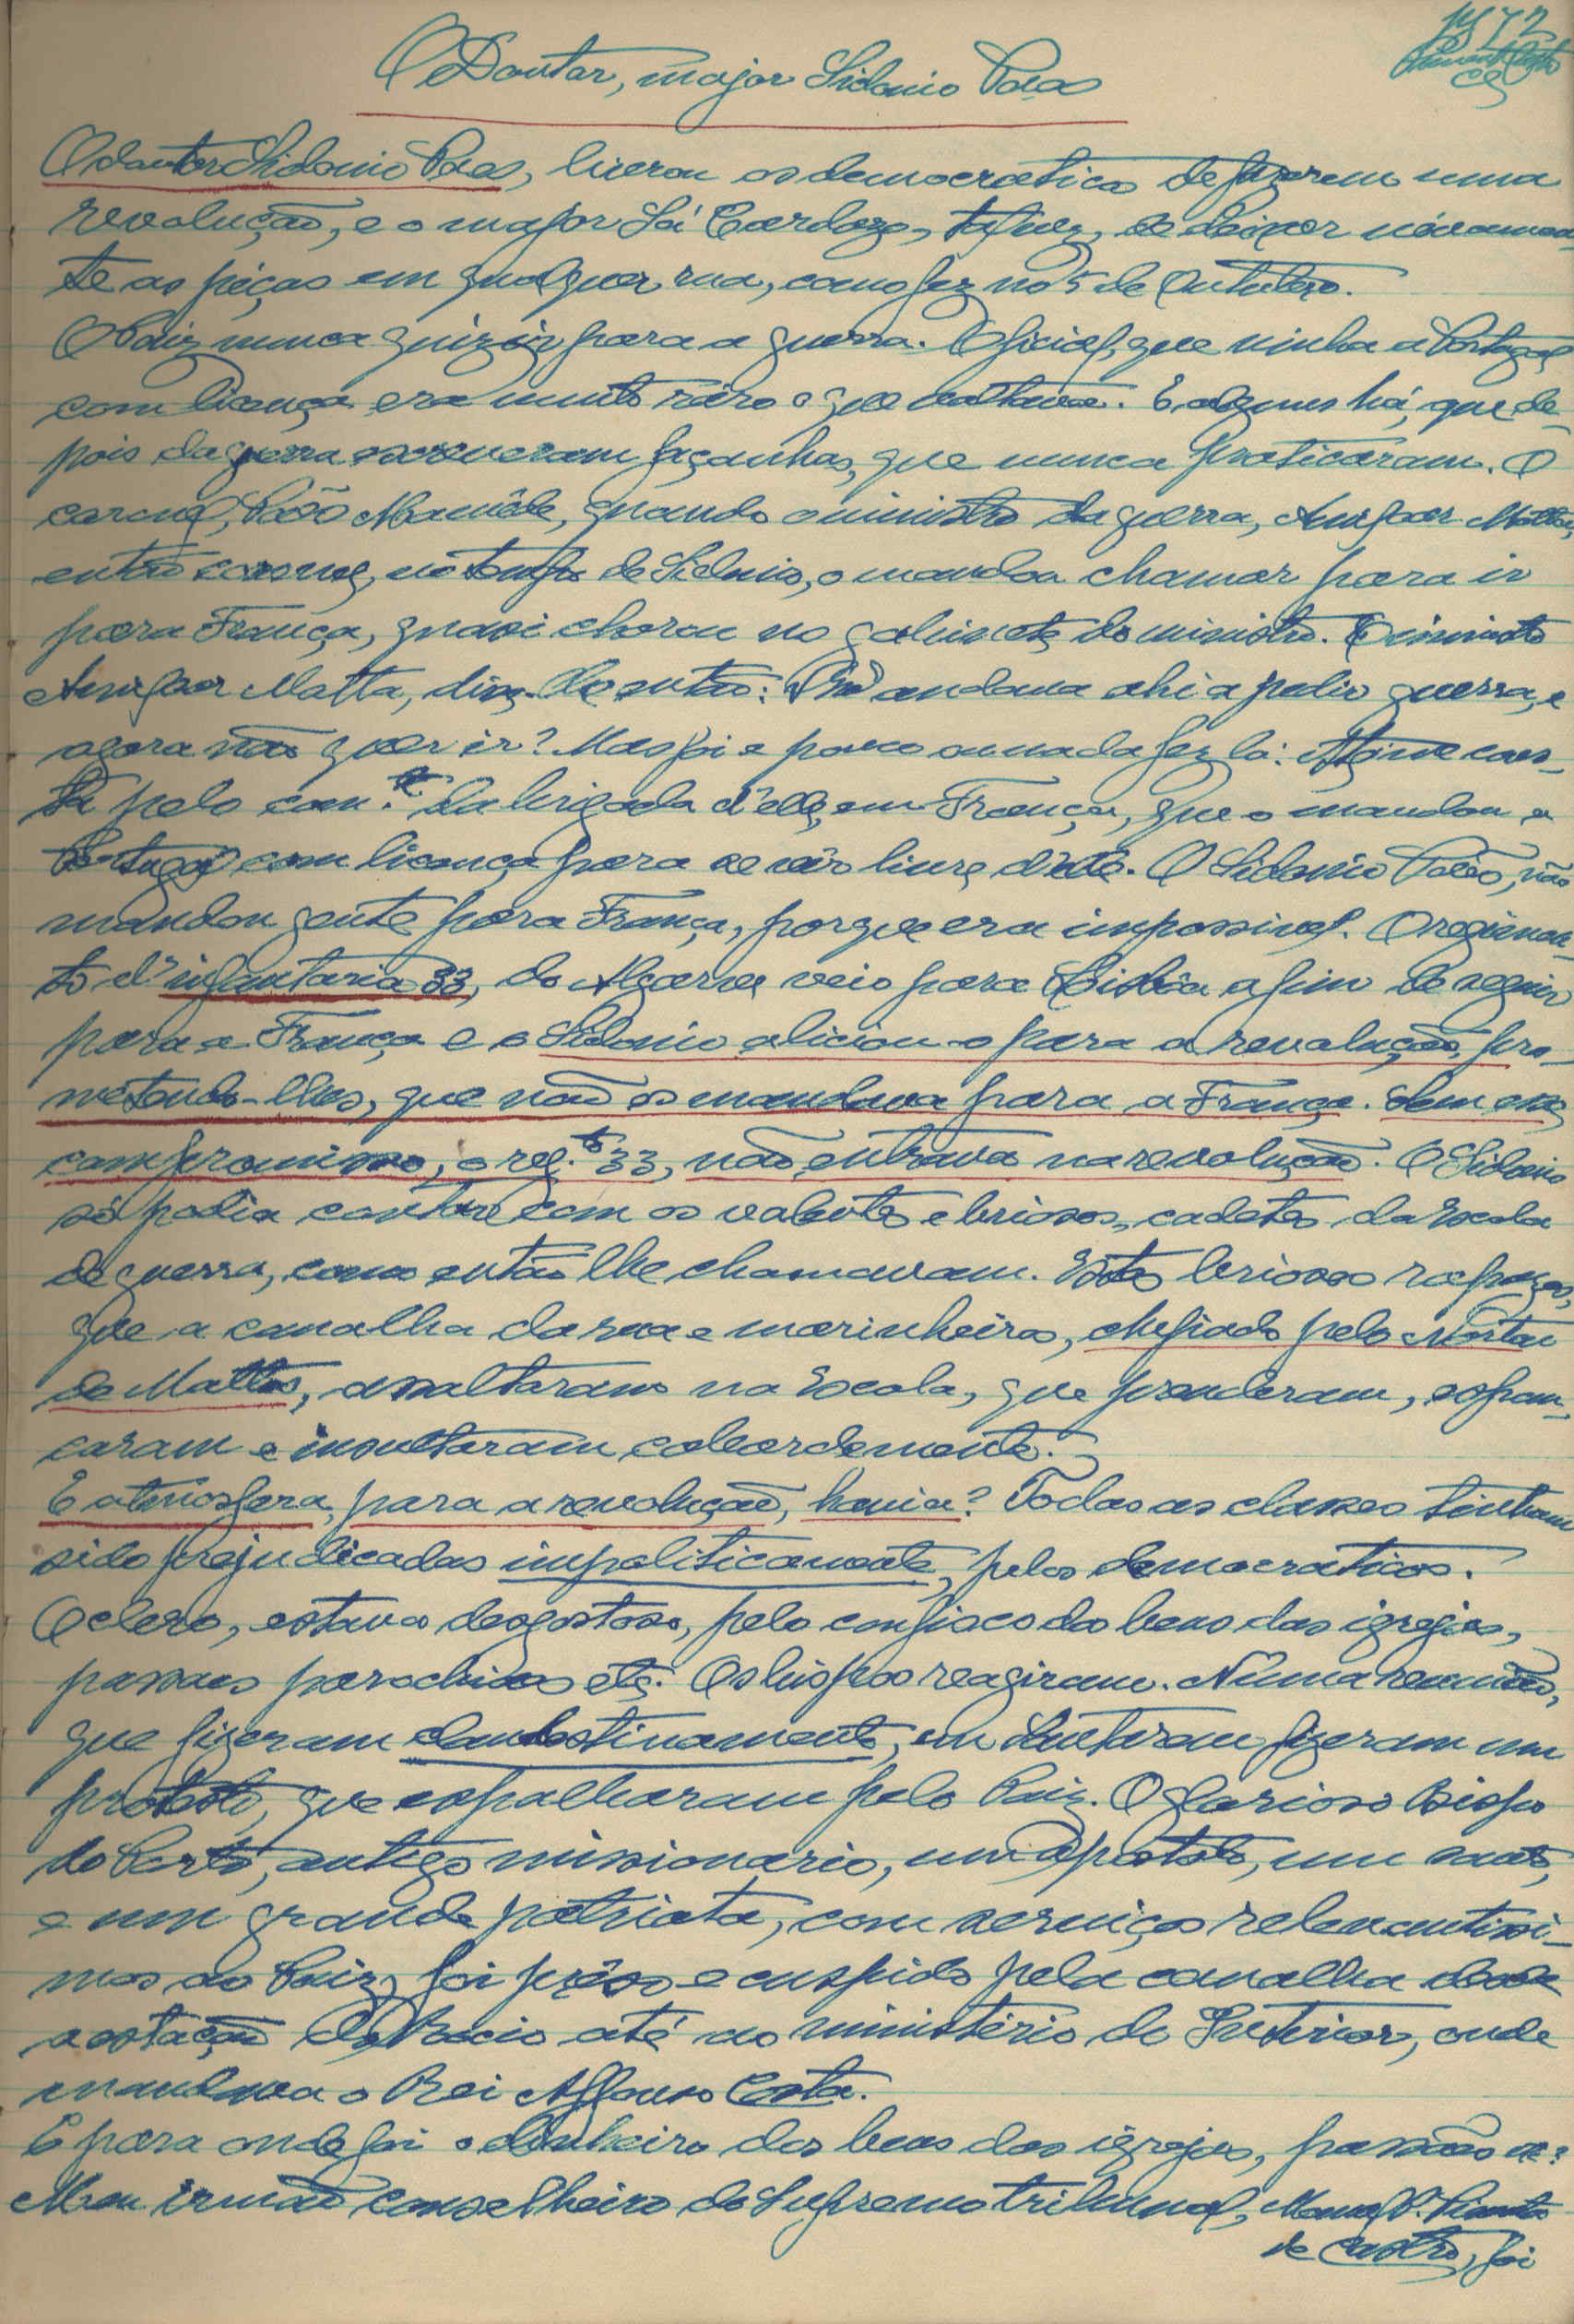 pg 72
Pimenta Castro
O Doutor, major Sidonio Paes
O doutor Sidonio Paes, livrou os democraticos de fazerem uma
revolução, e o major Sá Cardozo, talvez, de deixar nóvamen-
te as peças em qualquer rua, como fez no 5 de Outubro.
O Paiz nunca quiz ir para a guerra. Oficial, que vinha a Portugal
com licença era muito ráro o que voltava. E alguns há, que de-
pois da guerra escreveram façanhas, que nunca praticaram. O
coronel, Maia, quando o ministro da guerra, Amilcar Motta,
então coronel, no tempo de Sidonio, o mandou chamar para ir
para França, quasi chorou no gabinete do ministro. O ministro
Amilcar Motta, diz-lhe então: andava ahi a pedir guerra, e
agora não quer ir? Mas foi e pouco ou nada fez lá: isto me cons-
ta pelo com.te da brigada d'elle, em França, que o mandou a
Portugal com licença para se vêr livre d'elle. O Sidonio Paes, não
mandou gente para França, porque era impossivel. O regimen-
to d'infantaria 33, do Algarve veio para Lisbôa afim de seguir
para a França e o Sidonio aliciou-o para a revolução, pro-
metendo-lhes, que não os mandava para a França. Sem esse
compromisso, o reg.to 33, não entrava na revolução. O Sidonio
só podia contar com os valentes e briosos, cadetes da Escola
de guerra, como então lhe chamavam. Estes briosos rapazes,
que a canalha da rua e marinheiros, chefiado pelo Norton
de Mattos, assaltaram na Escola, que prenderam, espan-
caram e insultaram cobardemente.
E atmosfera, para a revolução, havia? Todas as classes tinham
sido prejudicadas impoliticamente, pelos democraticos.
O clero, estava desgostoso, pelo confisco dos bens das igrejas,
passaes parochiaes etc. Os bispos reagiram. Numa reunião,
que fizeram clandestinamente, em Santarem fizeram um
protesto, que espalharam pelo Paiz. O glorioso Bispo
do Porto, antigo missionario, um apostolo, um santo,
e um grande patriota, com serviços relevantissi-
mos ao Paiz, foi prêso e cuspido pela canalha desde
a estação do Rocio até ao ministério do Interior, onde
mandava o Rei Affonso Costa.
E para onde foi o dinheiro dos bens das igrejas, passaes etc?
Meu irmão conselheiro do Supremo tribunal, Manoel P. Pimenta
de Castro, foi